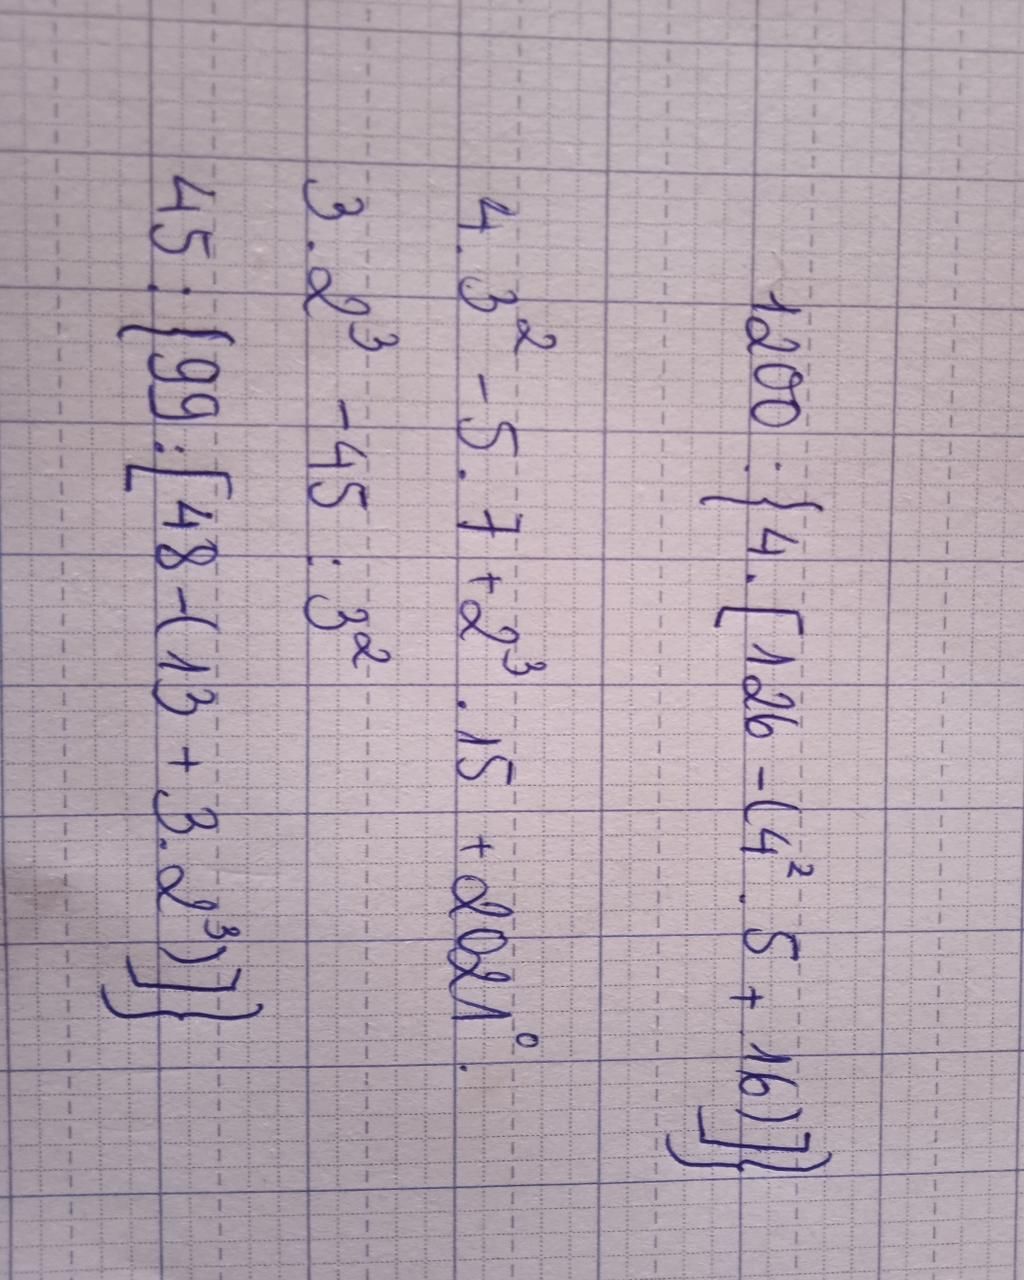 1200 : {4. [126 - (4² . 5 + 16)]}
4.3² - 5.7 + 2³ .15 + 2021⁰.
3.2³ - 45 : 3²
45 : {99 : [48 - (13 + 3.2³)]}